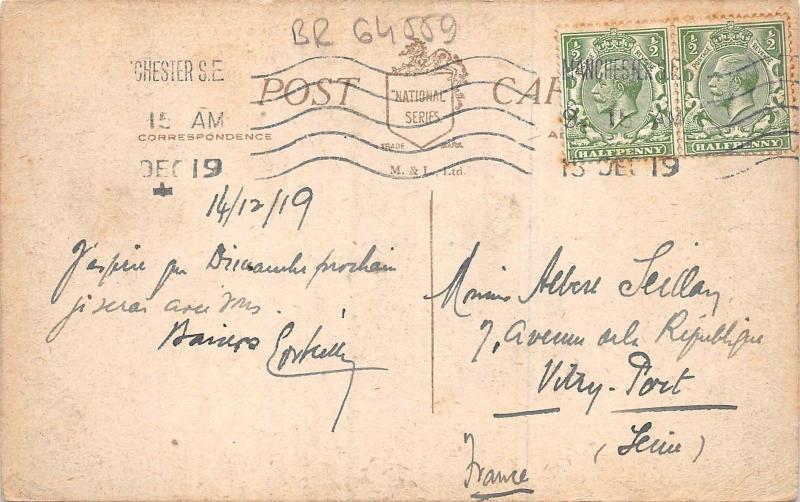 BR 64559
CHESTER S.E
15 AM
DEC 19
MANCHESTER S.E
15 AM
15 DEC 19
POST CAR
NATIONAL
SERIES
TRADE MARK
M. & L., Ltd.
CORRESPONDENCE
1/2 1/2
HALFPENNY
1/2 1/2
HALFPENNY
14/12/19
J'espère que Dimanche prochain
je serai avec vous.
Baisers
Monsieur Albert
7, avenue de la République
Vitry-Port
(Seine)
France